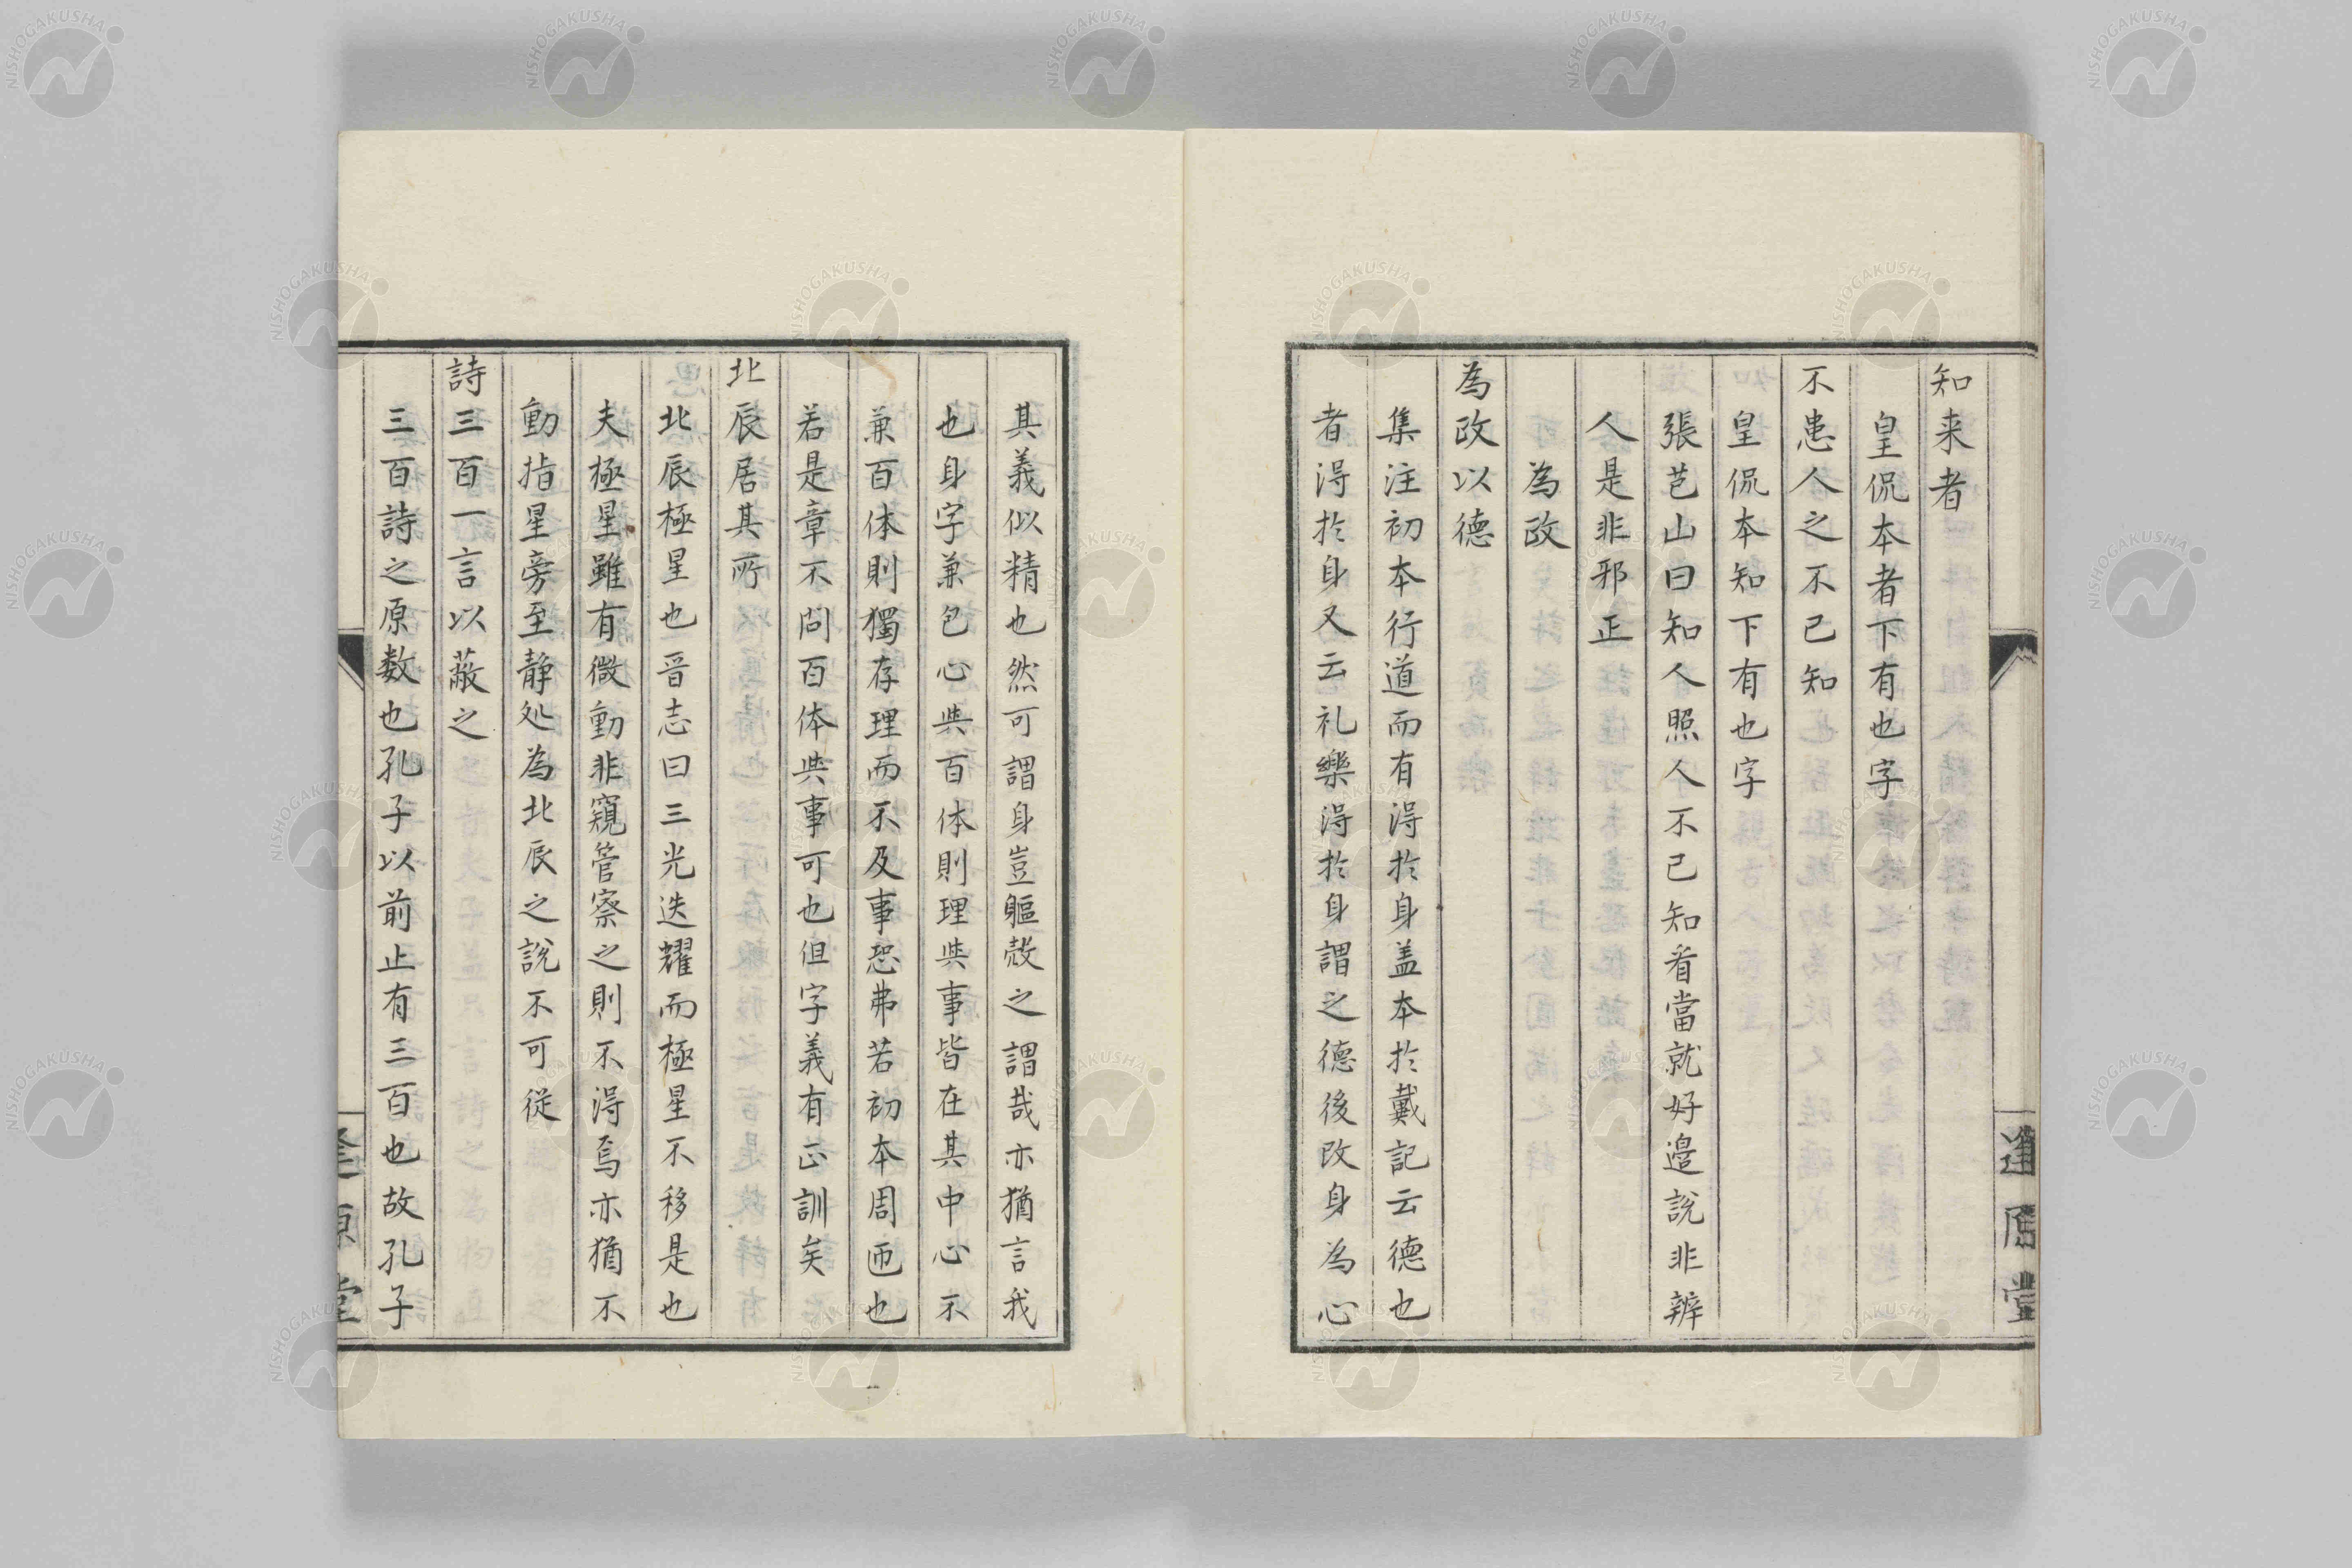 知来者
皇侃本者下有也字
不患人之不己知
皇侃本知下有也字
張芑山曰知人照人不己知看當就好邉說非辨
人是非邪正
為政
為政以德
集注初本行道而有得於身盖本於戴記云德也
者得於身又云礼樂得於身謂之德後改身為心
逢原堂
其義似精也然可謂身豈軀殼之謂哉亦猶言我
也身字兼包心與百体則理與事皆在其中心不
兼百体則獨存理而不及事恐弗若初本周匝也
若是章不問百体與事可也但字義有正訓矣
北辰居其所
北辰極星也晋志曰三光迭耀而極星不移是也
夫極星雖有微動非窺管察之則不得焉亦猶不
動指星旁至静処為北辰之說不可従
詩三百一言以蔽之
三百詩之原数也孔子以前止有三百也故孔子
NISHOGAKUSHA